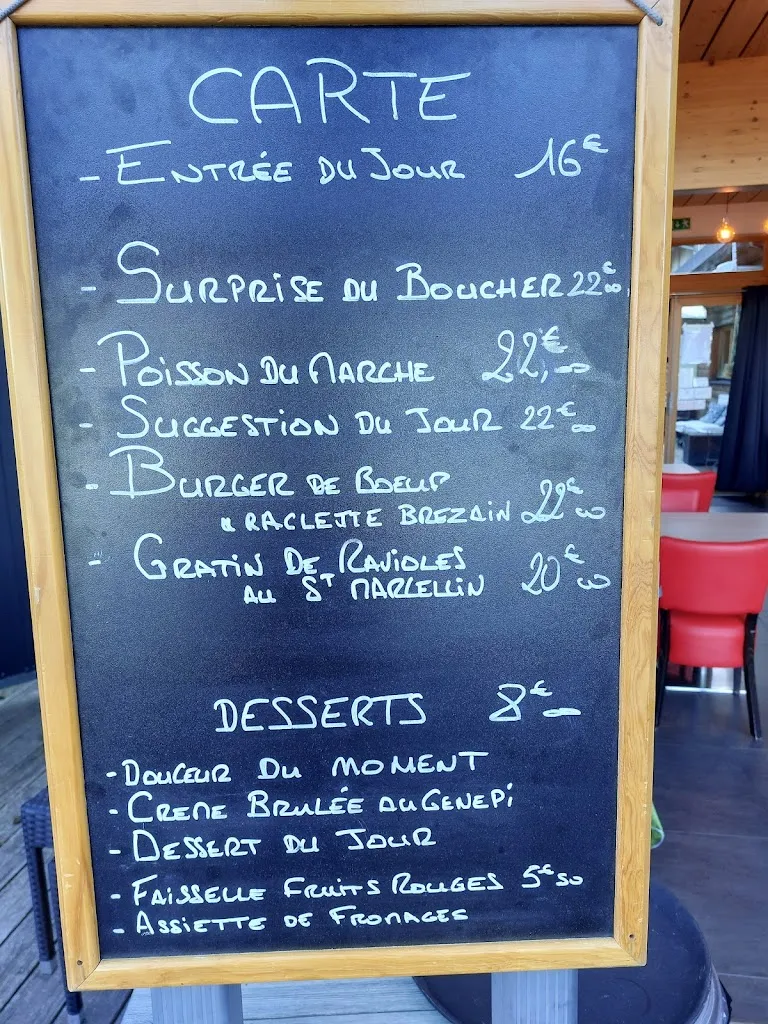 CARTE
- ENTRÉE DU JOUR 16€
- SURPRISE DU BOUCHER 22€00
- POISSON DU MARCHE 22,€—
- SUGGESTION DU JOUR 22€00
- BURGER DE BOEUF
" RACLETTE BREZAIN 22€00
- GRATIN DE RAVIOLES
AU ST MARCELLIN 20€00
DESSERTS 8€—
- DOUCEUR DU MOMENT
- CREME BRULÉE AU GENEPI
- DESSERT DU JOUR
- FAISSELLE FRUITS ROUGES 5€50
- ASSIETTE DE FROMAGES